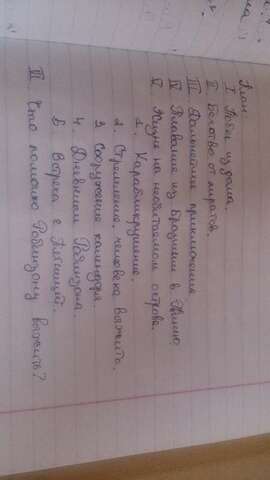 План.
I Побег из дома.
II Бегство от пиратов.
III Дальнейшие приключения
IV Плавание из Бразилии в Гвинею
V Жизнь на необитаемом острове.
1. Кораблекрушение.
2. Стремление человека выжить.
3 Сооружение календаря.
4. Дневники Робинзона.
5 Встреча с Пятницей.
VI Что помогло Робинзону выжить?